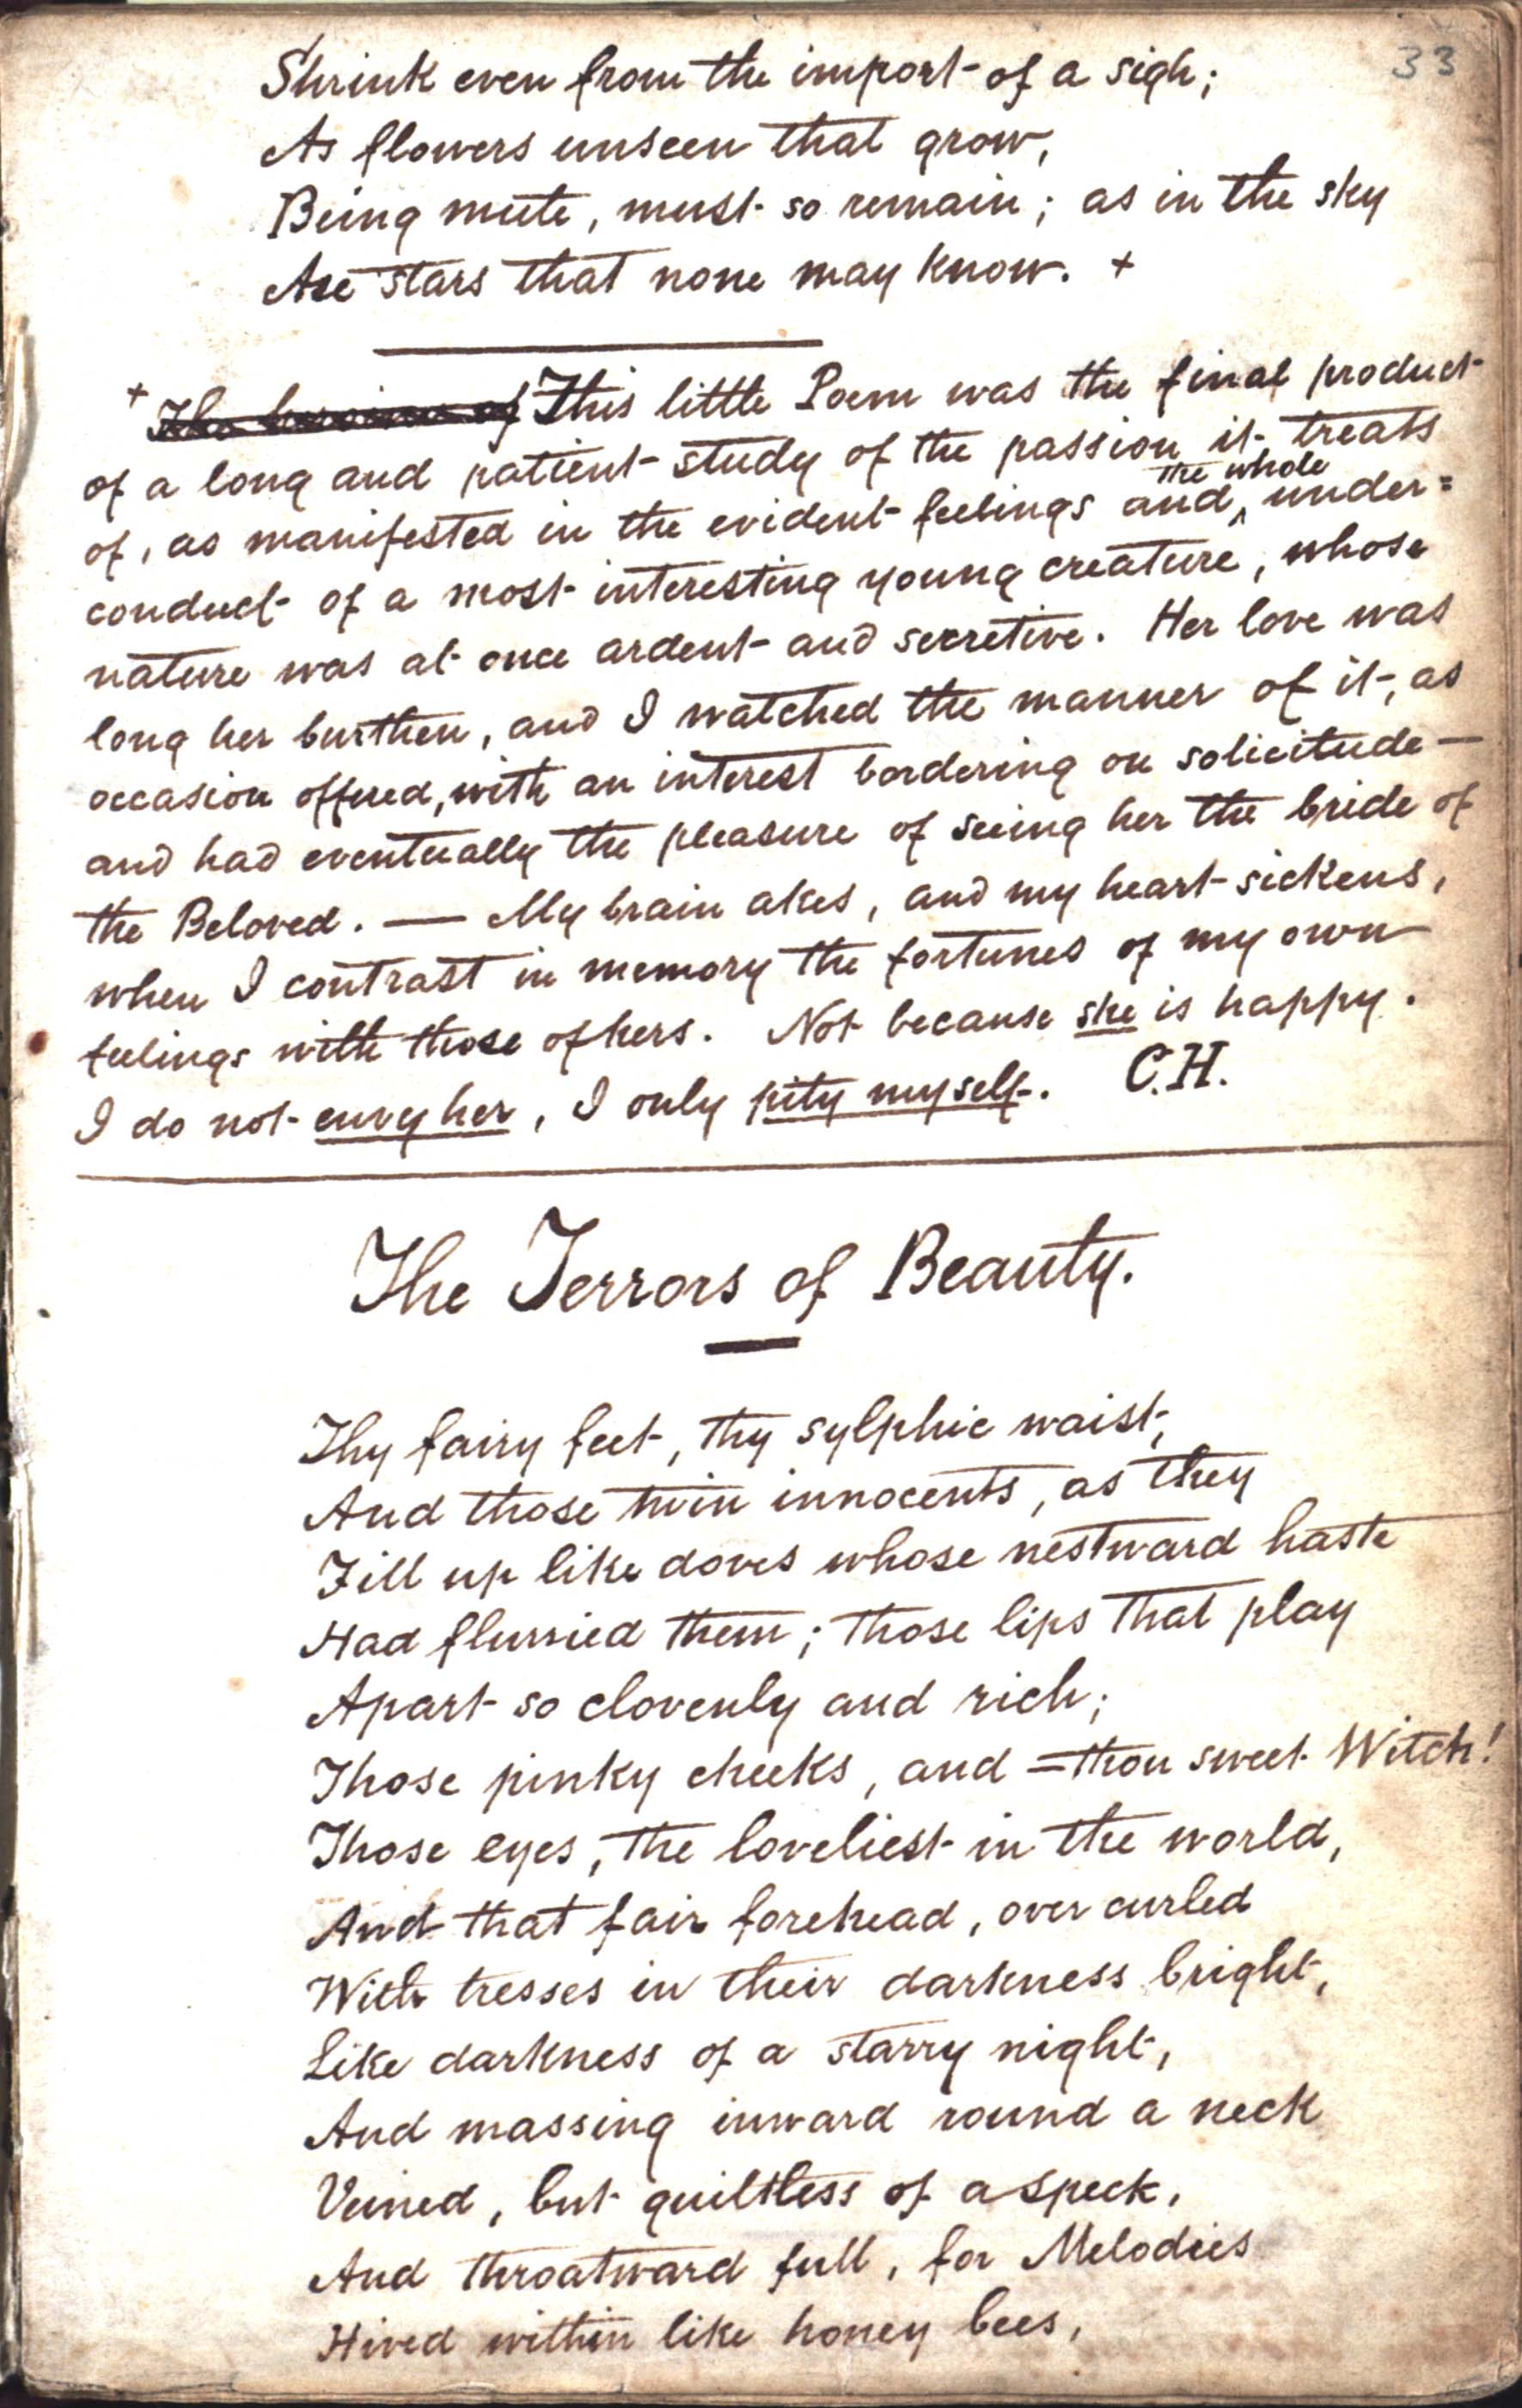 33
Shrink even from the import of a sigh;
As flowers unseen that grow,
Being mute, must so remain; as in the sky
Are stars that none may know. +
+ The heroine of This little Poem was the final product
of a long and patient study of the passion it treats
of, as manifested in the evident feelings and ^ the whole under=
conduct of a most interesting young creature, whose
nature was at once ardent and secretive. Her love was
long her burthen, and I watched the manner of it, as
occasion offered, with an interest bordering on solicitude —
and had eventually the pleasure of seeing her the bride of
the Beloved. — My brain akes, and my heart sickens,
when I contrast in memory the fortunes of my own
feelings with those of hers. Not because she is happy.
I do not envy her, I only pity myself. C.H.
The Terrors of Beauty.
Thy fairy feet, thy sylphic waist,
And those twin innocents, as they
Fill up like doves whose nestward haste
Had flurried them; those lips that play
Apart so clovenly and rich;
Those pinky cheeks, and =thou sweet Witch!
Those eyes, the loveliest in the world,
And that fair forehead, over curled
With tresses in their darkness bright,
Like darkness of a starry night,
And massing inward round a neck
Veined, but guiltless of a speck,
And throatward full, for Melodies
Hived within like honey bees,